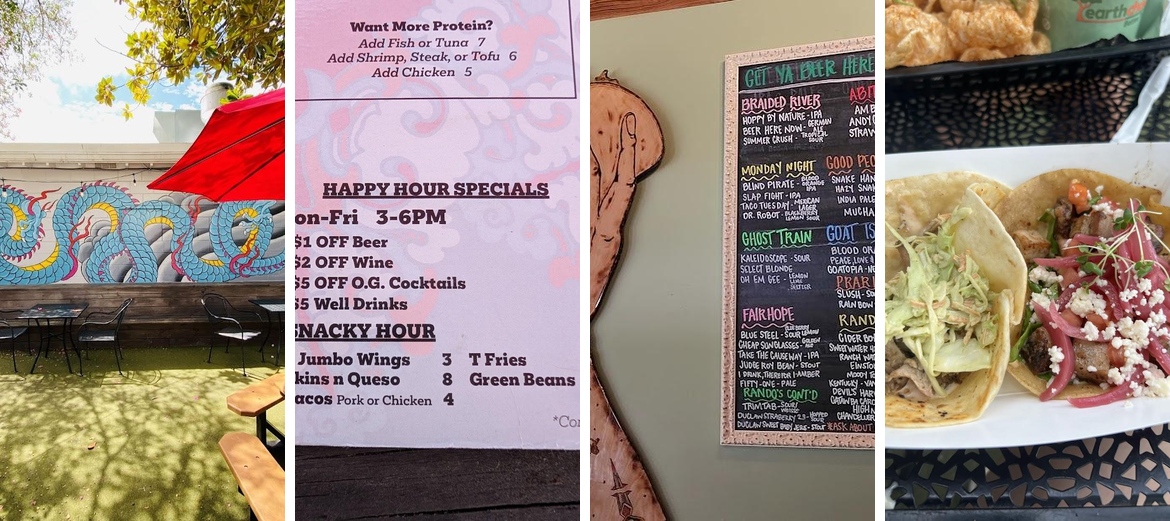 Want More Protein?
Add Fish or Tuna 7
Add Shrimp, Steak, or Tofu 6
Add Chicken 5
HAPPY HOUR SPECIALS
on-Fri 3-6PM
$1 OFF Beer
$2 OFF Wine
$5 OFF O.G. Cocktails
$5 Well Drinks
SNACKY HOUR
Jumbo Wings 3 T Fries
kins n Queso 8 Green Beans
acos Pork or Chicken 4
*Co
GET YA BEER HERE
BRAIDED RIVER
HOPPY BY NATURE - IPA
BEER HERE NOW - GERMAN ALE
SUMMER CRUSH - TROPICAL SOUR
MONDAY NIGHT
BLIND PIRATE - BLOOD ORANGE IPA
SLAP FIGHT - IPA
TACO TUESDAY - MEXICAN LAGER
DR. ROBOT - BLACKBERRY LEMON SOUR
GHOST TRAIN
KALEIDOSCOPE - SOUR
SELECT BLONDE
OH EM GEE - LEMON LIME
FAIRHOPE
BLUE STEEL - BLUEBERRY SOUR LEMON
CHEAP SUNGLASSES - GOLDEN ALE
TAKE THE CAUSEWAY - IPA
JUDGE ROY BEAN - STOUT
I DRINK, THEREFOR I AMBER
FIFTY-ONE - PALE
RANDO'S CONT'D
TRIMTAB - SOUR
DUCLAW STRABERRY
DUCLAW SWEET BABY JESUS - STOUT
ABI
AMB
ANDY
STRAW
GOOD PEO
SNAKE HAN
HAZY SNAK
INDIA PALE
MUCHA
GOAT IS
BLOOD ORA
PEACE, LOVE &
GOATOPIA - NE
PRAR
SLUSH - SO
RAINBOW
RAND
CIDER BO
SWEETWATER 4
RANCH WAT
EINSTO
MOODY T
KENTUCKY - VAN
DEVILS HARV
CATAWBA CARO
HIGH N
CHANDELEUR
*ASK ABOUT
earth